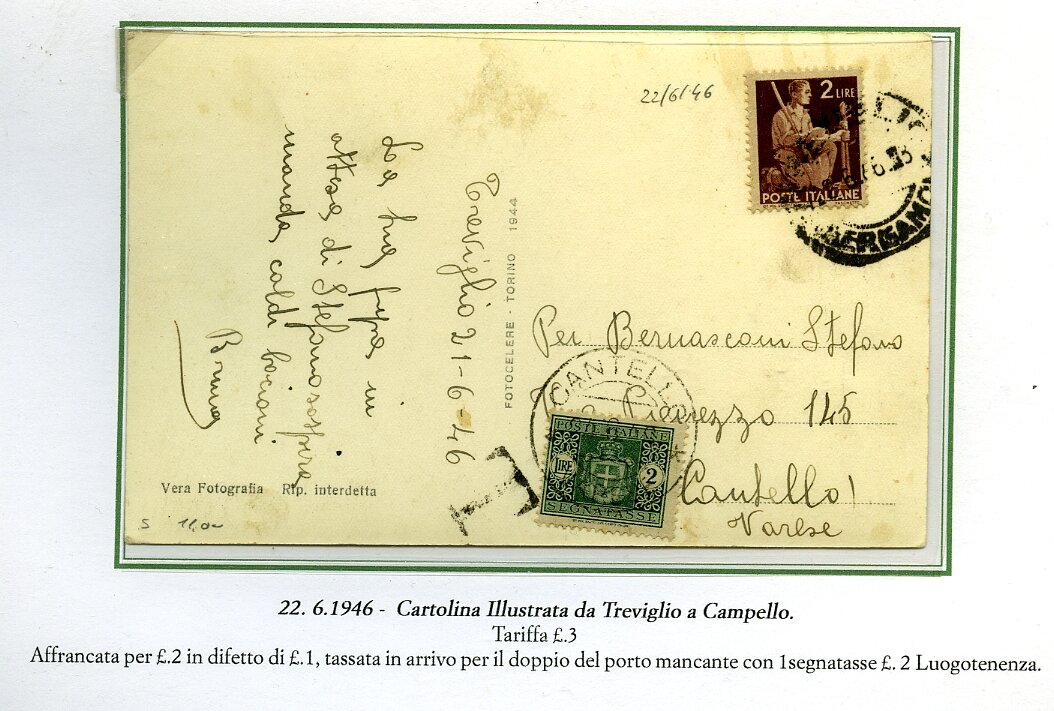 22/6/46
2 LIRE
POSTE ITALIANE
BERGAMO
La tua fifra in
attesa di Stefano sospira
manda caldi bacioni
Bruna
Treviglio 21-6-46
FOTOCELERE - TORINO 1944
Per Bernasconi Stefano
145
Cantello
Varese
CANTELLO
T
POSTE ITALIANE
LIRE 2
SEGNATASSE
Vera Fotografia Rip. interdetta
S
22. 6.1946 - Cartolina Illustrata da Treviglio a Campello.
Tariffa £.3
Affrancata per £.2 in difetto di £.1, tassata in arrivo per il doppio del porto mancante con 1segnatasse £. 2 Luogotenenza.